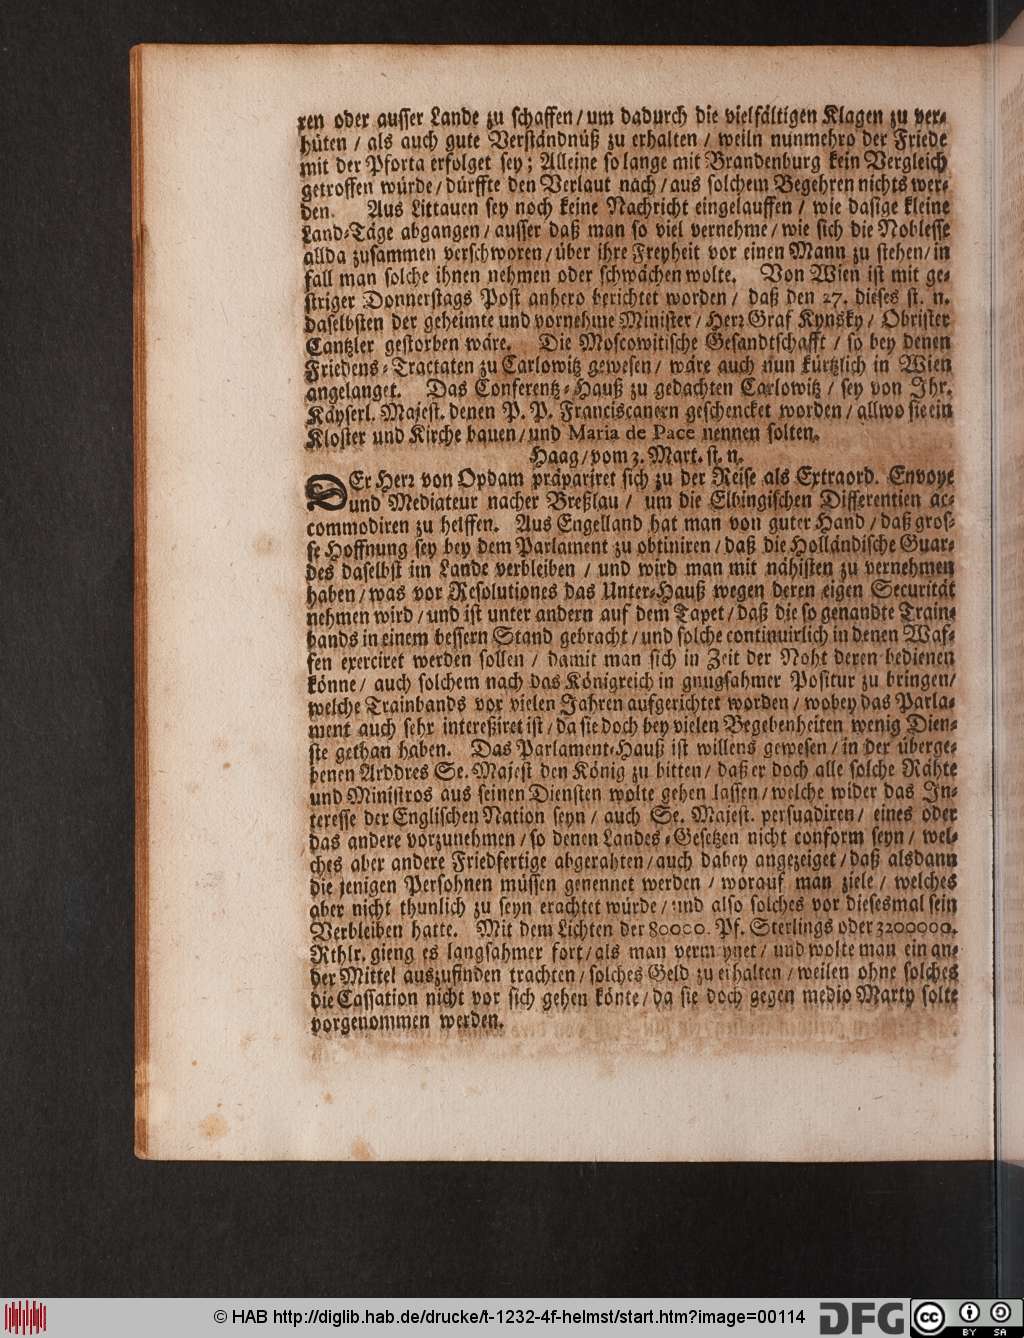 ren oder ausser Lande zu schaffen / um dadurch die vielfältigen Klagen zu ver-
hüten / als auch gute Verständnüß zu erhalten / weiln nunmehro der Friede
mit der Pforta erfolget sey; Alleine so lange mit Brandenburg kein Vergleich
getroffen würde / dürffte den Verlaut nach / aus solchem Begehren nichts wer-
den. Aus Littauen sey noch keine Nachricht eingelauffen / wie dasige kleine
Land-Täge abgangen / ausser daß man so viel vernehme / wie sich die Noblesse
allda zusammen verschworen / über ihre Freyheit vor einen Mann zu stehen / in
fall man solche ihnen nehmen oder schwächen wolte. Von Wien ist mit ge-
striger Donnerstags Post anhero berichtet worden / daß den 27. dieses st. n.
daselbsten der geheimte und vornehme Minister / Herr Graf Kynsky / Obrister
Cantzler gestorben wäre. Die Moscowitische Gesandtschafft / so bey denen
Friedens-Tractaten zu Carlowitz gewesen / wäre auch nun kürtzlich in Wien
angelanget. Das Conferentz-Hauß zu gedachten Carlowitz / sey von Ihr.
Käyserl. Majest. denen P. P. Franciscanern geschencket worden / allwo sie ein
Kloster und Kirche bauen / und Maria de Pace nennen solten.
Haag / vom 3. Mart. st. n.
DEr Herr von Opdam präpariret sich zu der Reise als Extraord. Envoye
und Mediateur nacher Breßlau / um die Elbingischen Differentien ac-
commodiren zu helffen. Aus Engelland hat man von guter Hand / daß gros-
se Hoffnung sey bey dem Parlament zu obtiniren / daß die Holländische Guar-
des daselbst im Lande verbleiben / und wird man mit nähisten zu vernehmen
haben / was vor Resolutiones das Unter-Hauß wegen deren eigen Securität
nehmen wird / und ist unter andern auf dem Tapet / daß die so genandte Train-
bands in einem bessern Stand gebracht / und solche continuirlich in denen Waf-
fen exerciret werden sollen / damit man sich in Zeit der Noht deren bedienen
könne / auch solchem nach das Königreich in gnugsahmer Positur zu bringen /
welche Trainbands vor vielen Jahren aufgerichtet worden / wobey das Parla-
ment auch sehr intereßiret ist / da sie doch bey vielen Begebenheiten wenig Dien-
ste gethan haben. Das Parlament-Hauß ist willens gewesen / in der überge-
benen Arddres Se. Majest den König zu bitten / daß er doch alle solche Rähte
und Ministros aus seinen Diensten wolte gehen lassen / welche wider das In-
teresse der Englischen Nation seyn / auch Se. Majest. persuadiren / eines oder
das andere vorzunehmen / so denen Landes-Gesetzen nicht conform seyn / wel-
ches aber andere Friedfertige abgerahten / auch dabey angezeiget / daß alsdann
die jenigen Persohnen müssen genennet werden / worauf man ziele / welches
aber nicht thunlich zu seyn erachtet würde / und also solches vor diesesmal sein
Verbleiben hatte. Mit dem Lichten der 80000. Pf. Sterlings oder 3200000.
Rthlr. gieng es langsahmer fort / als man vermeynet / und wolte man ein an-
der Mittel auszufinden trachten / solches Geld zu erhalten / weilen ohne solches
die Cassation nicht vor sich gehen könte / da sie doch gegen medio Marty solte
vorgenommen werden.
© HAB http://diglib.hab.de/drucke/t-1232-4f-helmst/start.htm?image=00114
DFG
cc
BY SA